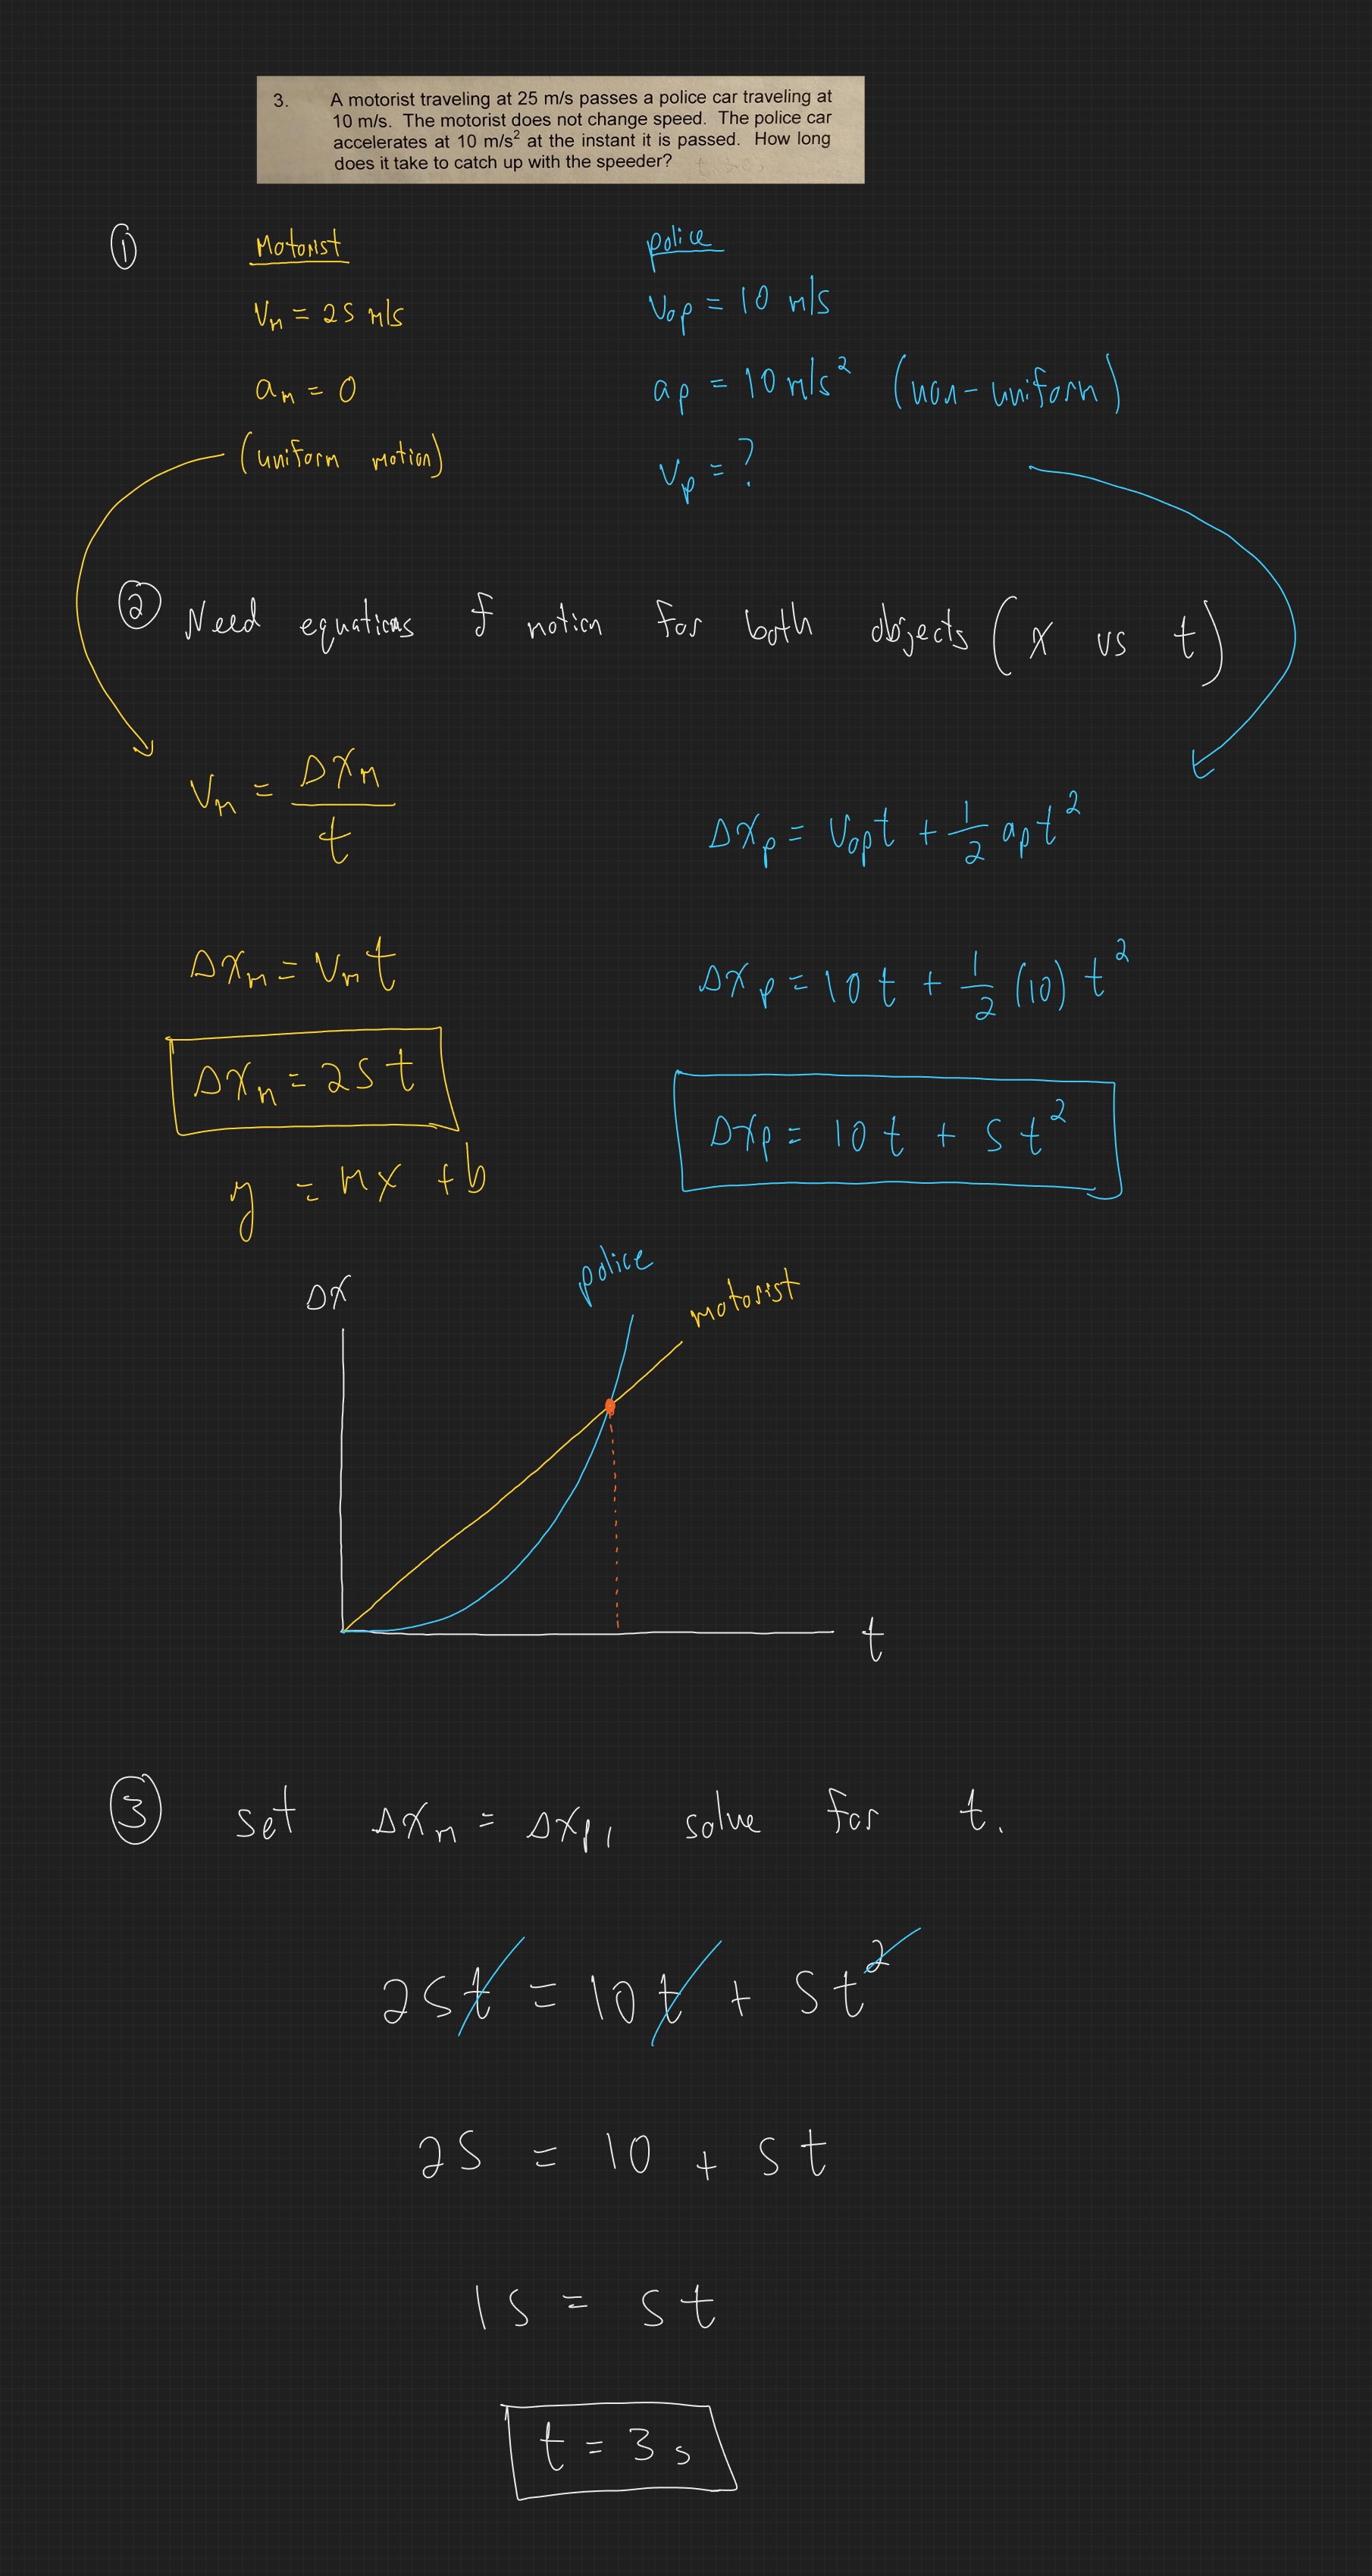 3. A motorist traveling at 25 m/s passes a police car traveling at
10 m/s. The motorist does not change speed. The police car
accelerates at 10 m/s² at the instant it is passed. How long
does it take to catch up with the speeder?
① Motorist police
Vₘ = 25 m/s V₀ₚ = 10 m/s
aₘ = 0 aₚ = 10 m/s² (non-uniform)
(uniform motion) Vₚ = ?
② Need equations of motion for both objects (x vs t)
Vₘ = ΔXₘ / t
ΔXₚ = V₀ₚt + 1/2 aₚt²
ΔXₘ = Vₘt ΔXₚ = 10t + 1/2 (10) t²
ΔXₘ = 25t ΔXₚ = 10t + 5t²
y = mx + b
police
ΔX motorist
t
③ set ΔXₘ = ΔXₚ, solve for t.
25t = 10t + 5t²
25 = 10 + 5t
15 = 5t
t = 3 s